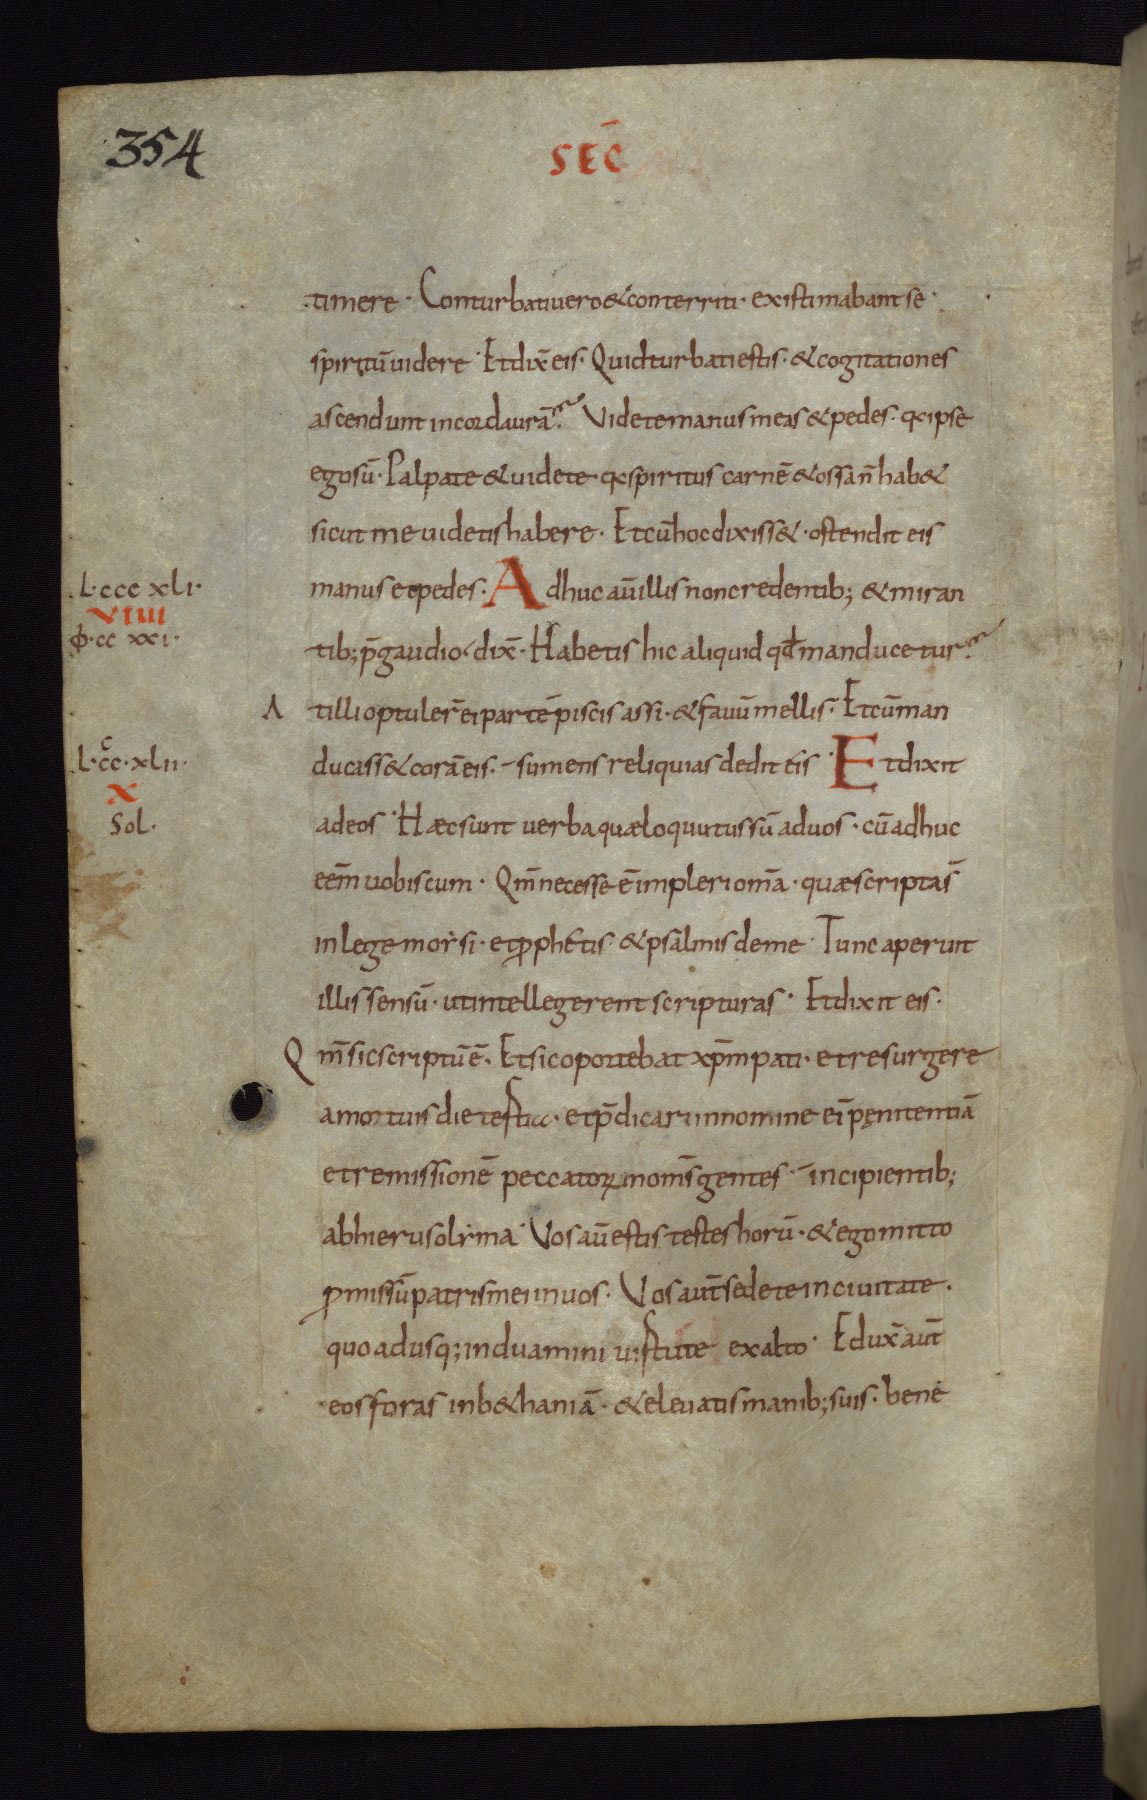 354
SEC̄
timere · Conturbati uero & conterriti · existimabant se
spiritū uidere · Et dix̄ eis · Quid turbati estis · & cogitationes
ascendunt in corda urā? Videte manus meas & pedes · q̶ ipse
ego sū · Palpate & uidete q̶ spiritus carnē & ossa n̄ hab&
sicut me uidetis habere · Et cū hoc dixiss& · ostendit eis
L · ccc xli ·
VIIII
φ · cc xxi ·
manus et pedes · Adhuc aū illis non credentib; & miran
tib; p̄ gaudio · dix̄ · Habetis hic aliquid qd̄ manducetur?
At illi optuler̄ ei partē piscis assi · & fauū mellis · Et cū man
L · ccc · xlii ·
X
Sol ·
ducass& corā eis · sumens reliquias dedit eis · Et dixit
ad eos · Hæc sunt uerba quæ loquutus sū ad uos · cū adhuc
eēm uobiscum · Qm̄ necesse ē impleri om̄a · quæ scripta s̄
in lege moysi · et prophetis & psalmis de me · Tunc aperuit
illis sensū · ut intellegerent scripturas · Et dixit eis ·
Qm̄ sic scriptū ē · Et sic oportebat xp̄m pati · et resurgere
a mortuis die tertia · et p̄dicari in nomine eī pęnitentiā
et remissionē peccatoꝝ in om̄s gentes · incipientib;
ab hierusolyma · Vos aū estis testes horū · & ego mitto
promissū patris mei in uos · Vos aut̄ sedete in ciuitate ·
quo adusq; induamini uirtute ex alto · Edux̄ aut̄
eos foras in b&haniā · & eleuatis manib; suis · bene